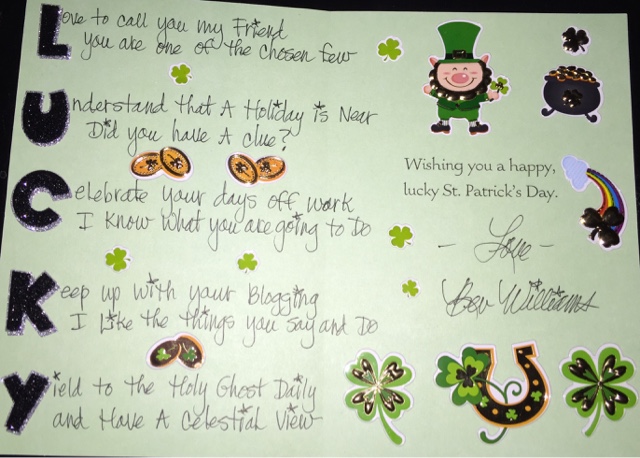 Love to call you my Friend
You are one of the chosen few
Understand that A Holiday is Near
Did you have A clue?
Celebrate your days off work
I Know what you are going to Do
Keep up with your Blogging
I Like the things you say and Do
Yield to the Holy Ghost Daily
and Have A Celestial View
Wishing you a happy,
lucky St. Patrick's Day.
- Love -
Bev Williams